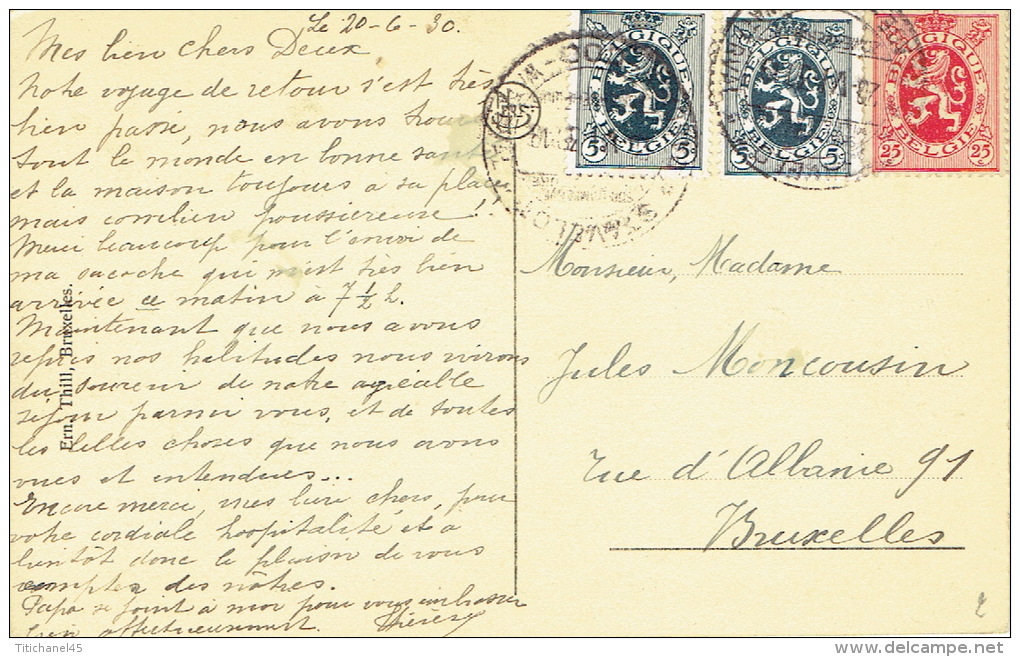 Le 20-6-30.
Mes bien chers Deux
Notre voyage de retour s'est très
bien passé, nous avons trouvé
tout le monde en bonne santé
et la maison toujours à sa place
mais combien poussiéreuse !!
Merci beaucoup pour l'envoi de
ma sacoche qui m'est très bien
arrivée ce matin à 7 ½ h.
Maintenant que nous avons
repris nos habitudes nous vivrons
du souvenir de notre agréable
séjour parmi vous, et de toutes
les belles choses que nous avons
vues et entendues...
Encore merci, mes bien chers, pour
votre cordiale hospitalité et à
bientôt donc le plaisir de vous
compter des nôtres.
Papa se joint à moi pour vous embrasser
bien affectueusement.
Ern. Thill, Bruxelles.
BELGIQUE
5c 5c
BELGIE
BELGIQUE
5c 5c
BELGIE
BELGIQUE
25c 25c
BELGIE
Monsieur, Madame
Jules Moncousin
rue d'Albanie 91
Bruxelles
2
Titichanel45
delcampe.net